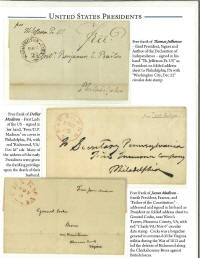 UNITED STATES PRESIDENTS
Free frank of Thomas Jefferson
- third President, Signer and
Author of the Declaration of
Independence - signed in his
hand "Th. Jefferson Pr. US" as
President on folded address
sheet to Philadelphia, PA with
"Washington City, Dec 22"
circular date stamp.
Free Frank of Dolley
Madison - First Lady
of the US - signed in
her hand,
Madison" on cover to
Philadelphia, PA with
red "Richmond, VA/
Dec 16" cds. Many of
the widows of the early
Presidents were given
the franking privilege
upon the death of their
husband.
Philadelphia
Pennsylvania
Fire Insurance Company
Philadelphia
General Cocke
Free Frank of James Madison -
fourth President, Framer, and
"Father of the Constitution" -
addressed and signed in his hand as
President on folded address sheet to
General Cocke, near Wood's
Tavern, Fluvanna County, VA, with
red
date stamp. Cocke was a brigadier
general in command of the Virginia
militia during the War of 1812 and
led the defense of Richmond along
the Chickahominy River against
British forces.